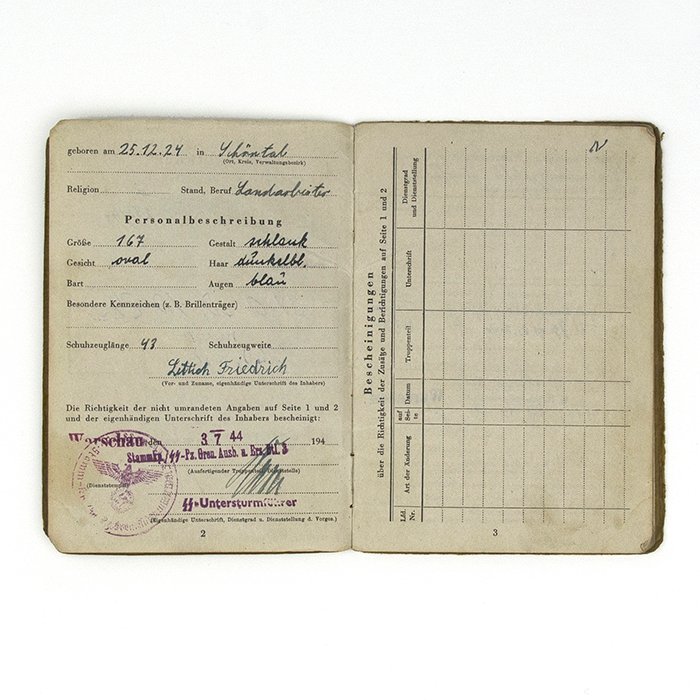 geboren am 25.12.24 in Schöntal
(Ort, Kreis, Verwaltungsbezirk)
Religion Stand, Beruf Landarbeiter
Personalbeschreibung
Größe 167 Gestalt schlank
Gesicht oval Haar dunkelbl.
Bart Augen blau
Besondere Kennzeichen (z. B. Brillenträger)
Schuhzeuglänge 43 Schuhzeugweite
Friedrich
(Vor- und Zuname, eigenhändige Unterschrift des Inhabers)
Die Richtigkeit der nicht umrandeten Angaben auf Seite 1 und 2
und der eigenhändigen Unterschrift des Inhabers bescheinigt:
Warschau den 3 7 44 194
Stammkp./SS-Pz. Gren. Ausb. u. Ers. Btl. 3
(Ausfertigender Truppenteil, Dienststelle)
(Dienststempel)
SS-Untersturmführer
(Eigenhändige Unterschrift, Dienstgrad u. Dienststellung d. Vorges.)
2
Bescheinigungen
über die Richtigkeit der Zusätze und Berichtigungen auf Seite 1 und 2
Lfd. Nr.
Art der Änderung
auf Sei-te
Datum
Truppenteil
Unterschrift
Dienstgrad und Dienststellung
3